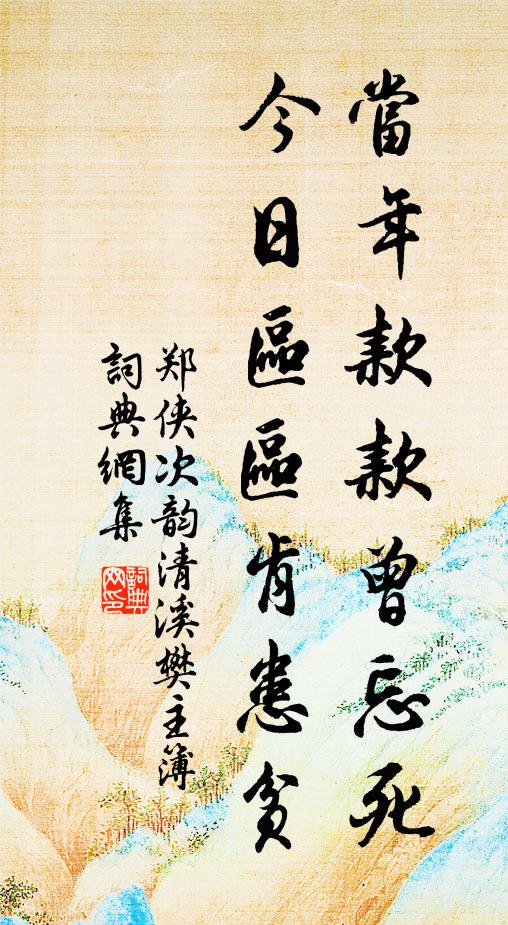 當年款款曾忘死
今日區區肯患貧
郑侠次韵清溪樊主簿
詞典網集
詞典網印